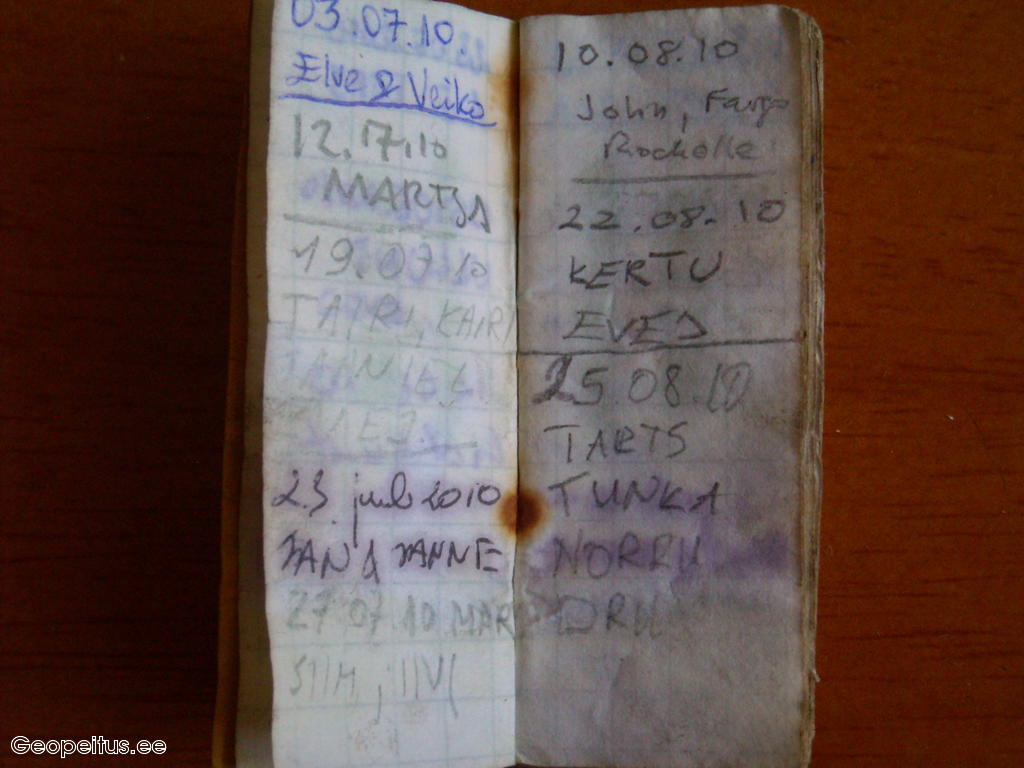 03.07.10.
Elve & Veiko
12.17.10
MARTSA
19.07 10
TAIRI, KAIRI
23. juuli 2010
JAN & JANNE
27 07 10 MAR
SIIM, IIVI
10.08.10
John, Fargo
Rochelle
22.08.10
KERTU
EVED
25 08.10
TARTS
TUNKA
NORRU
Geopeitus.ee